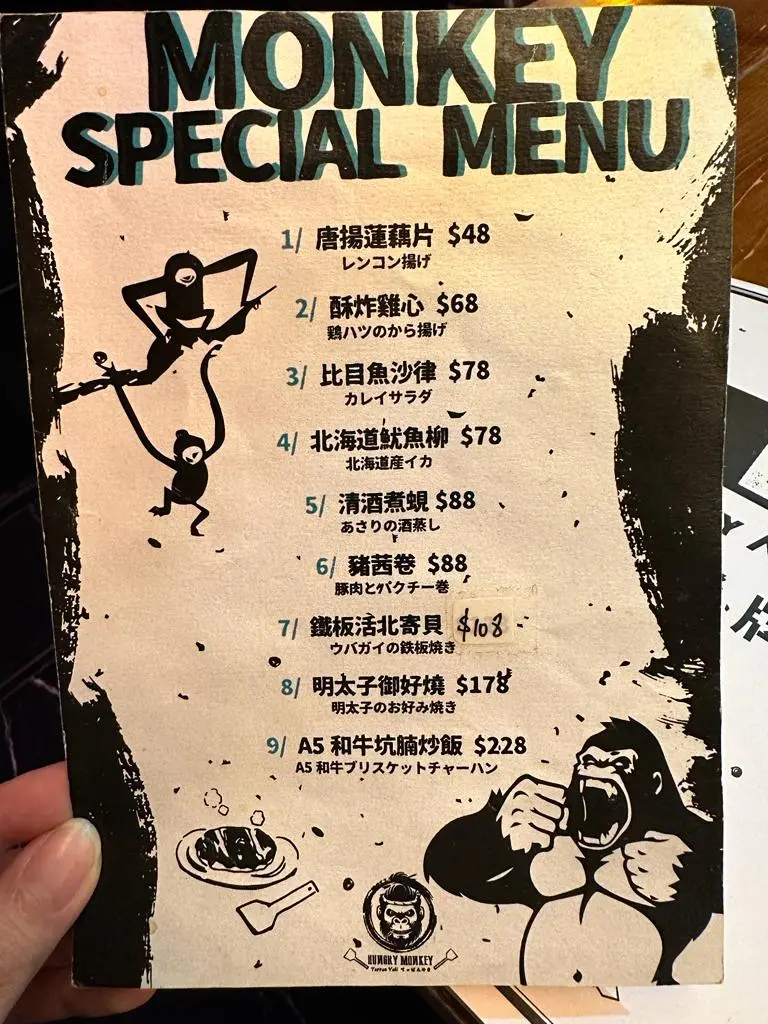 MONKEY
SPECIAL MENU
1/ 唐揚蓮藕片 $48
レンコン揚げ
2/ 酥炸雞心 $68
鶏ハツのから揚げ
3/ 比目魚沙律 $78
カレイサラダ
4/ 北海道魷魚柳 $78
北海道産イカ
5/ 清酒煮蜆 $88
あさりの酒蒸し
6/ 豬茜卷 $88
豚肉とパクチー巻
7/ 鐵板活北寄貝 $108
ウバガイの鉄板焼き
8/ 明太子御好燒 $178
明太子のお好み焼き
9/ A5 和牛坑腩炒飯 $228
A5 和牛ブリスケットチャーハン
HUNGRY MONKEY